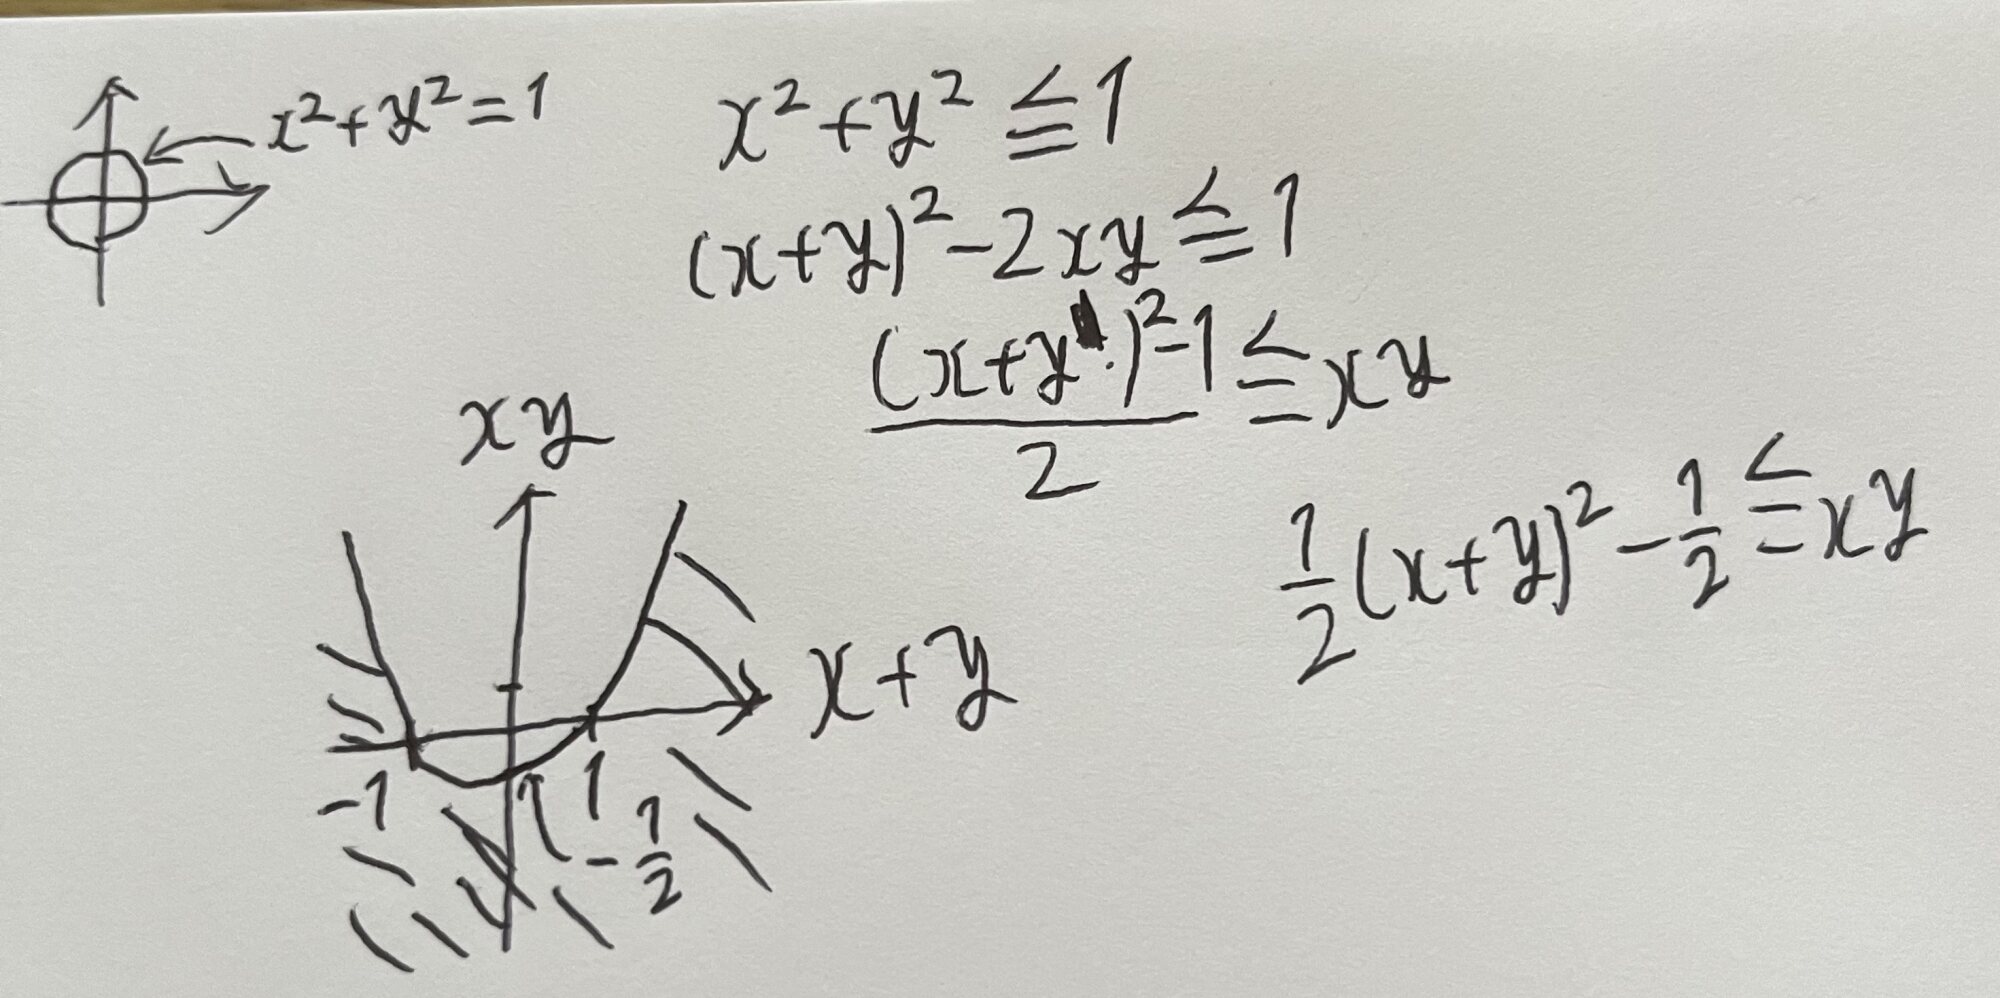 x²+y²=1
x²+y²≦1
(x+y)²-2xy≦1
(x+y)²-1/2≦xy
1/2(x+y)²-1/2≦xy
xy
x+y
-1
1
-1/2